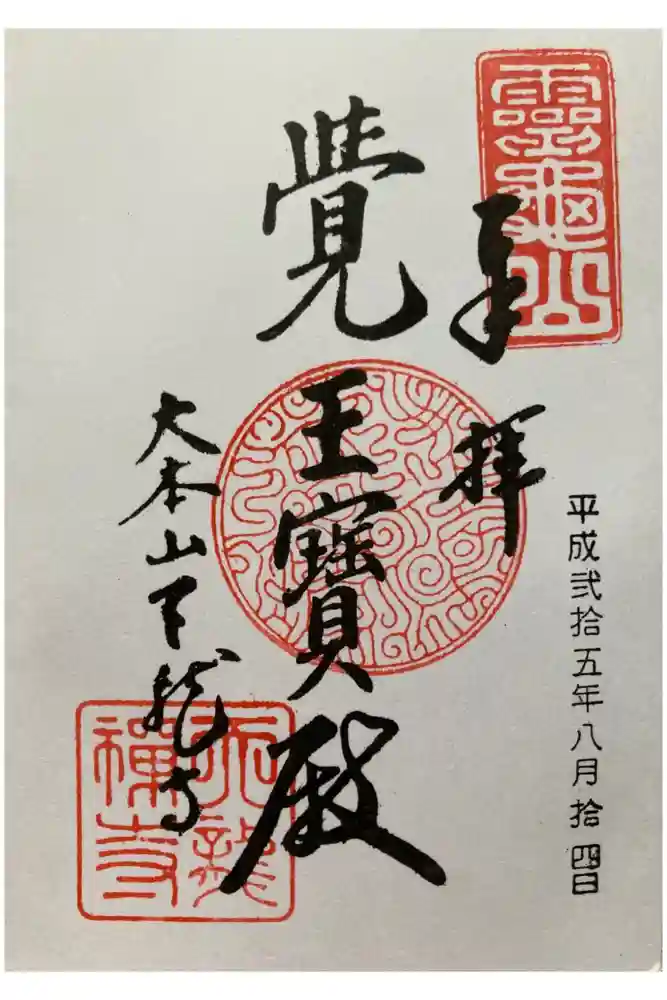 平成弐拾五年八月拾四日
靈龜山
奉拝
覺王寳殿
大本山天龍寺
天龍
禅寺